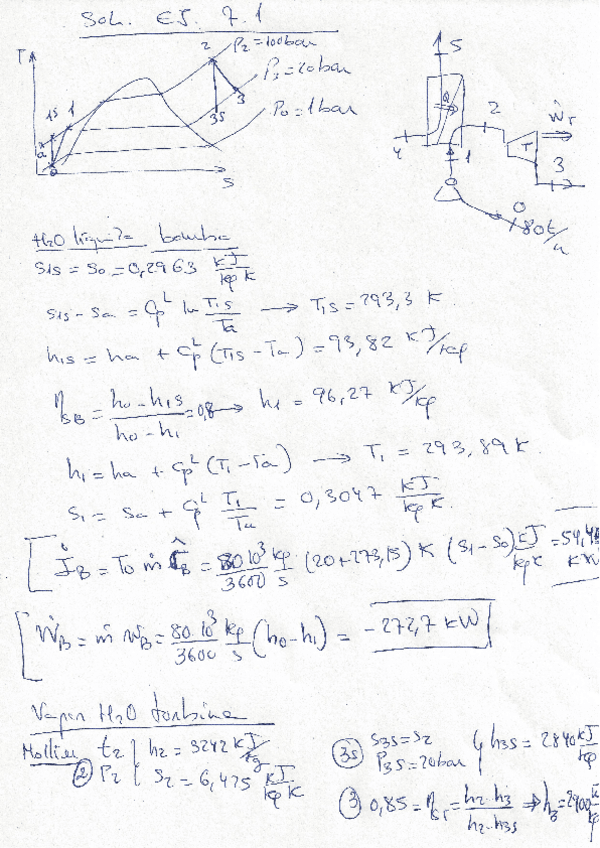 Sol. EJ. 7.1
T
2
P2 = 100 bar
P3 = 20 bar
P0 = 1 bar
1S 1
a
0
3S 3
S
5
Q
2
Ẇr
T
4
1
3
0
80t/h
H2O líquida bomba
S1S = S0 = 0,2963 kJ/kg K
S1S - Sa = Cp^L ln T1S/Ta → T1S = 293,3 K
h1S = ha + Cp^L (T1S - Ta) = 93,82 kJ/kg
ηSB = (h0 - h1S)/(h0 - h1) = 0,8 → h1 = 96,27 kJ/kg
h1 = ha + Cp^L (T1 - Ta) → T1 = 293,89 K
S1 = Sa + Cp^L T1/Ta = 0,3047 kJ/kg K
İB = T0 ṁ σ̂B = 80·10^3/3600 kg/s · (20+273,15) K (S1 - S0) kJ/kg K = 54,4 kW
ẆB = ṁ wB = 80·10^3/3600 kg/s (h0 - h1) = -272,7 kW
Vapor H2O turbina
Mollier t2 { h2 = 3242 kJ/kg
② P2 { S2 = 6,475 kJ/kg K
③S S3S = S2
P3S = 20bar } h3S = 2840 kJ/kg
③ 0,85 = ηST = (h2 - h3)/(h2 - h3S) ⇒ h3 = 2900 kJ/kg